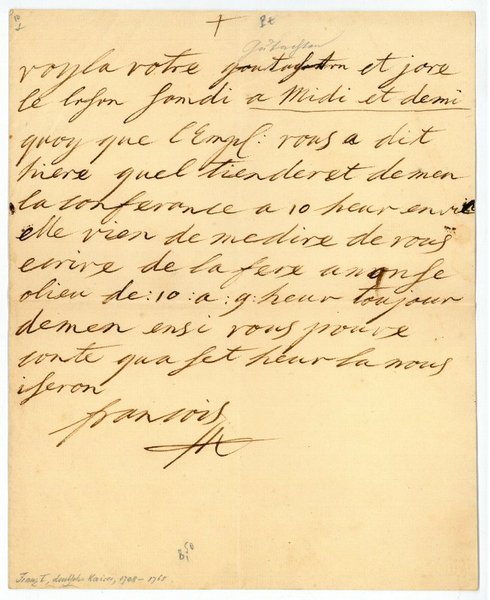 Gutachten
voyla votre et jore
le lason Samdi a Midi et demi
quoy que l'Emp: vous a dit
hiere quel tienderet demen
la conferance a 10 heur
elle vien de me dire de vous
ecrire de la fere anonse
olieu de :10: a :9: heur toujour
demen ensi vous pouve
conte qua set heur la nous
iseron
francois
Franz I, deutscher Kaiser, 1708-1765